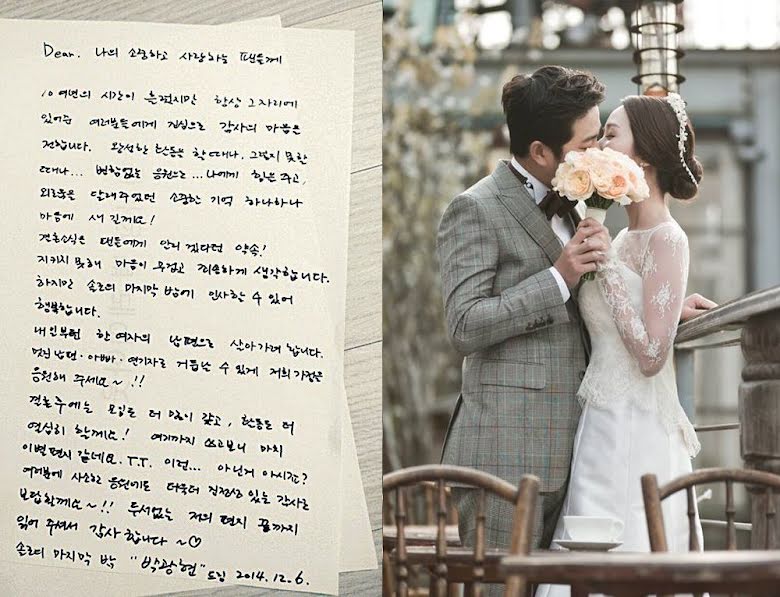 Dear. 나의 소중하고 사랑하는 팬들께
10여년의 시간이 흘렀지만 항상 그자리에
있어준 여러분들에게 진심으로 감사의 마음을
전합니다. 왕성한 활동을 할때나, 그렇지 못한
때나... 변함없는 응원으로... 나에게 힘을 주고,
외로움을 달래주었던 소중한 기억 하나하나
마음에 새길께요!
결혼소식은 팬들에게 먼저 전하겠다던 약속!
지키지 못해 마음이 무겁고 죄송하게 생각합니다.
하지만 솔로의 마지막 밤에 인사할 수 있어
행복합니다.
내일부턴 한 여자의 남편으로 살아가려 합니다.
멋진 남편·아빠·연기자로 거듭날 수 있게 저희 가정을
응원해 주세요~!!
결혼후에는 모임도 더 많이 갖고, 활동도 더
열심히 할께요! 여기까지 쓰고보니 마치
이별편지 같네요. T.T. 이런... 아닌거 아시죠?
여러분의 사소한 응원에도 더욱더 진정성 있는 감사로
보답할께요~!! 두서없는 저의 편지 끝까지
읽어 주셔서 감사합니다~♡
솔로의 마지막 밤 "박광현" 드림 2014.12.6.